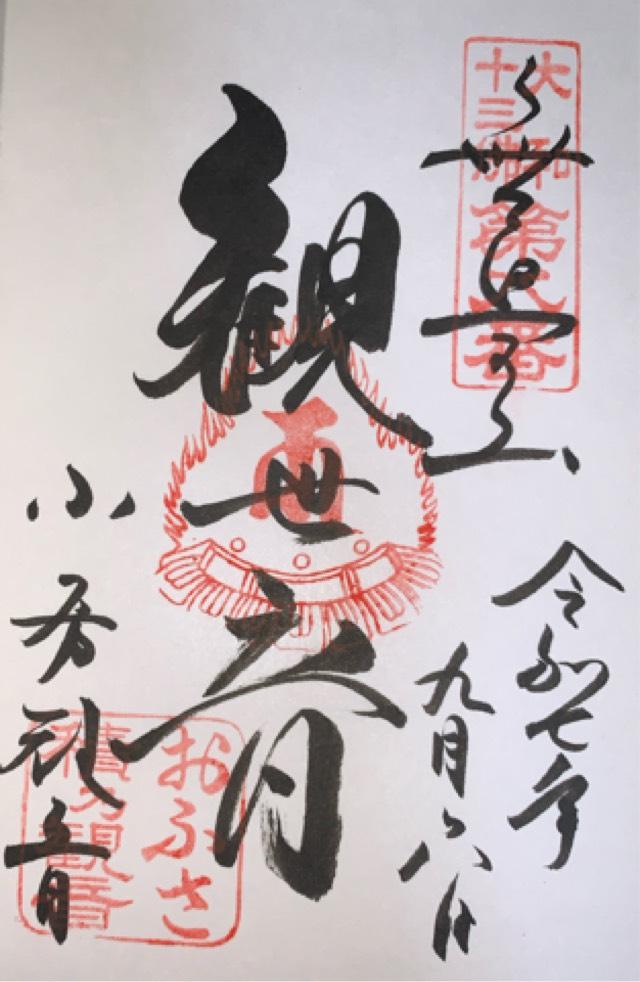 大和
十三佛第八番
令和七年
九月六日
観世音
小房観音
おふさ
観音